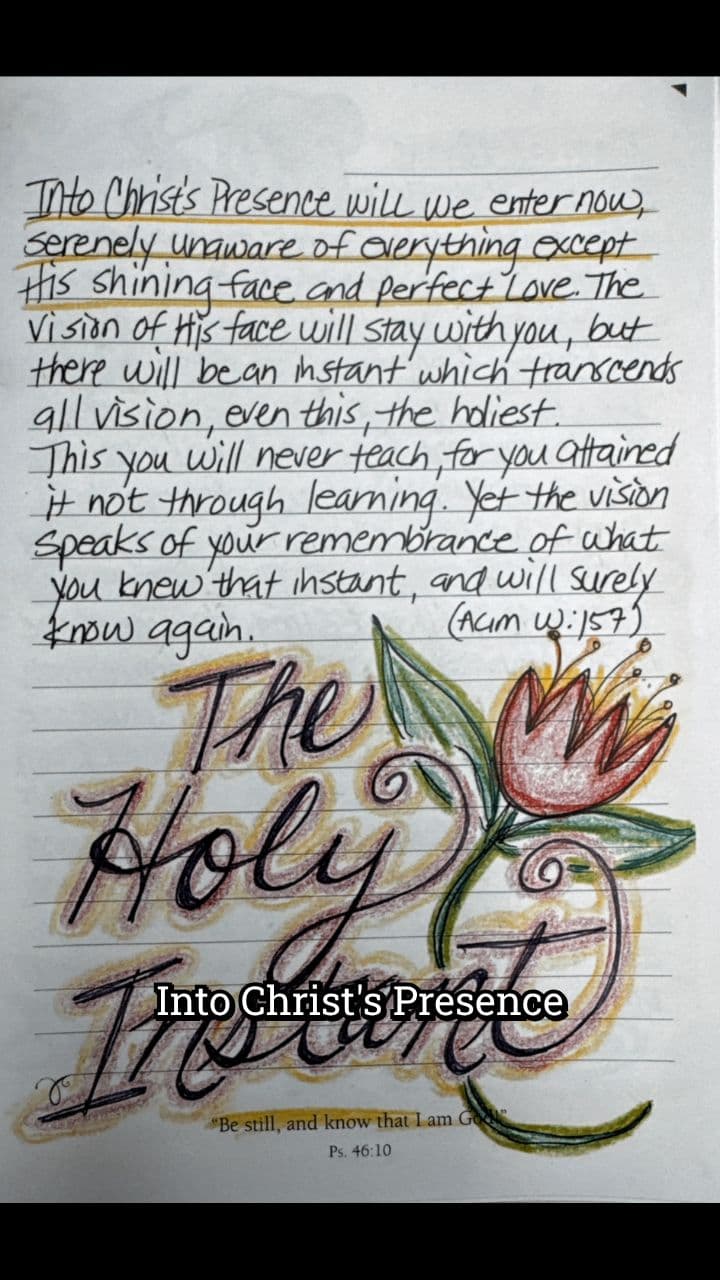 Into Christ's Presence will we enter now,
serenely unaware of everything except
His shining face and perfect Love. The
vision of His face will stay with you, but
there will be an instant which transcends
all vision, even this, the holiest.
This you will never teach, for you attained
it not through learning. Yet the vision
speaks of your remembrance of what
you knew that instant, and will surely
know again. (ACIM W:157)
The
Holy
Instant
Into Christ's Presence
"Be still, and know that I am God!"
Ps. 46:10